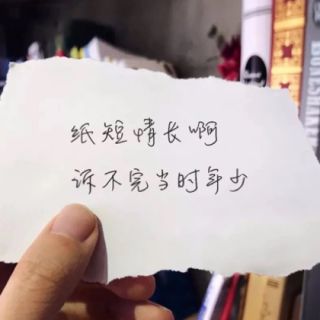 纸短情长啊
诉不完当时年少